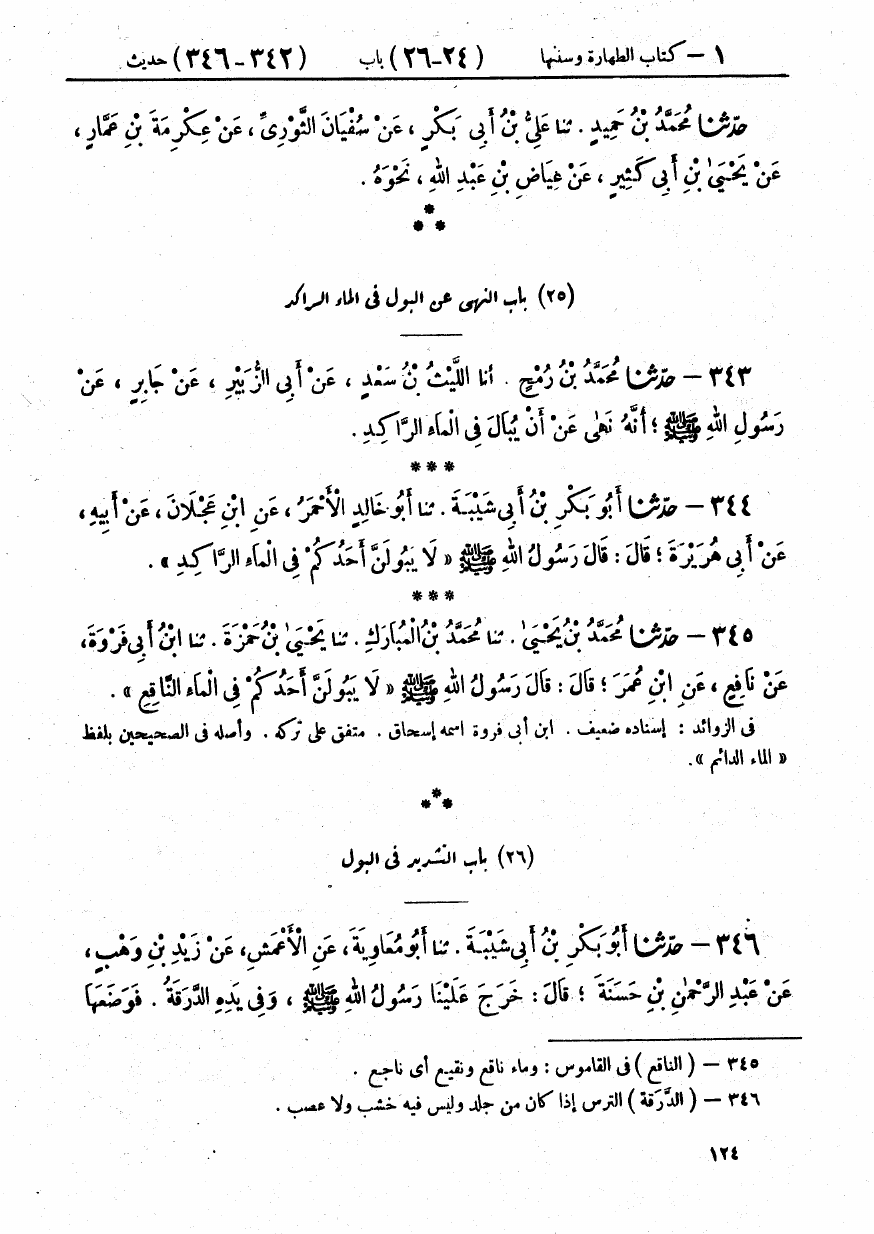 ١ – كتاب الطهارة وسننها (٢٤-٢٦) باب (٣٤٢-٣٤٦) حديث
حدّثنا مُحَمَّدُ بْنُ حَمِيدٍ . ثنا عَلِيُّ بْنُ أَبِى بَكْرٍ ، عَنْ سُفْيَانَ الثَّوْرِىِّ ، عَنْ عِكْرِمَةَ بْنِ عَمَّارٍ ،
عَنْ يَحْيَىٰ بْنِ أَبِى كَثِيرٍ ، عَنْ عِيَاضِ بْنِ عَبْدِ اللهِ ، نَحْوَهُ .
*
* *
(٢٥) باب النهى عن البول فى الماء الراكد
٣٤٣ – حدّثنا مُحَمَّدُ بْنُ رُمْحٍ . أنا اللَّيْثُ بْنُ سَعْدٍ ، عَنْ أَبِى الزُّبَيْرِ ، عَنْ جَابِرٍ ، عَنْ
رَسُولِ اللهِ ﷺ ؛ أَنَّهُ نَهَىٰ عَنْ أَنْ يُبَالَ فِى الْمَاءِ الرَّاكِدِ .
* * *
٣٤٤ – حدّثنا أَبُو بَكْرِ بْنُ أَبِى شَيْبَةَ . ثنا أَبُو خَالِدٍ الْأَحْمَرُ ، عَنِ ابْنِ عَجْلَانَ ، عَنْ أَبِيهِ ،
عَنْ أَبِى هُرَيْرَةَ ؛ قَالَ : قَالَ رَسُولُ اللهِ ﷺ « لَا يَبُولَنَّ أَحَدُكُمْ فِى الْمَاءِ الرَّاكِدِ » .
* * *
٣٤٥ – حدّثنا مُحَمَّدُ بْنُ يَحْيَىٰ . ثنا مُحَمَّدُ بْنُ الْمُبَارَكِ . ثنا يَحْيَىٰ بْنُ حَمْزَةَ . ثنا ابْنُ أَبِى فَرْوَةَ ،
عَنْ نَافِعٍ ، عَنِ ابْنِ عُمَرَ ؛ قَالَ : قَالَ رَسُولُ اللهِ ﷺ « لَا يَبُولَنَّ أَحَدُكُمْ فِى الْمَاءِ النَّاقِعِ » .
فى الزوائد : إسناده ضعيف . ابن أبى فروة اسمه إسحاق . متفق على تركه . وأصله فى الصحيحين بلفظ
« الماء الدائم » .
*
* *
(٢٦) باب التشديد فى البول
٣٤٦ – حدّثنا أَبُو بَكْرِ بْنُ أَبِى شَيْبَةَ . ثنا أَبُو مُعَاوِيَةَ ، عَنِ الْأَعْمَشِ ، عَنْ زَيْدِ بْنِ وَهْبٍ ،
عَنْ عَبْدِ الرَّحْمٰنِ بْنِ حَسَنَةَ ؛ قَالَ : خَرَجَ عَلَيْنَا رَسُولُ اللهِ ﷺ ، وَفِى يَدِهِ الدَّرَقَةُ . فَوَضَعَهَا
٣٤٥ – ( الناقع ) فى القاموس : وماء ناقع ونقيع أى ناجع .
٣٤٦ – ( الدَّرَقة ) الترس إذا كان من جلد وليس فيه خشب ولا عصب .
١٢٤